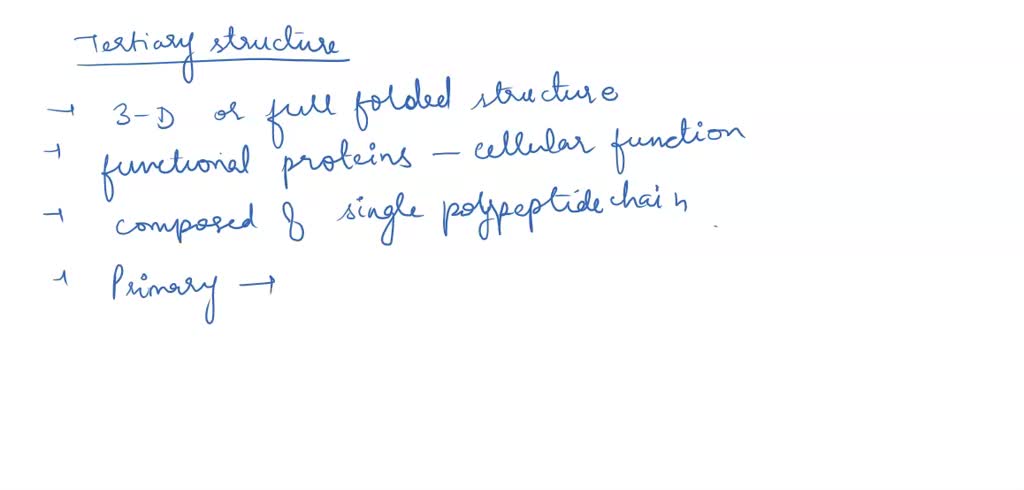 Tertiary structure
→ 3-D or full folded structure
→ functional proteins – cellular function
→ composed of single polypeptide chain
→ Primary →